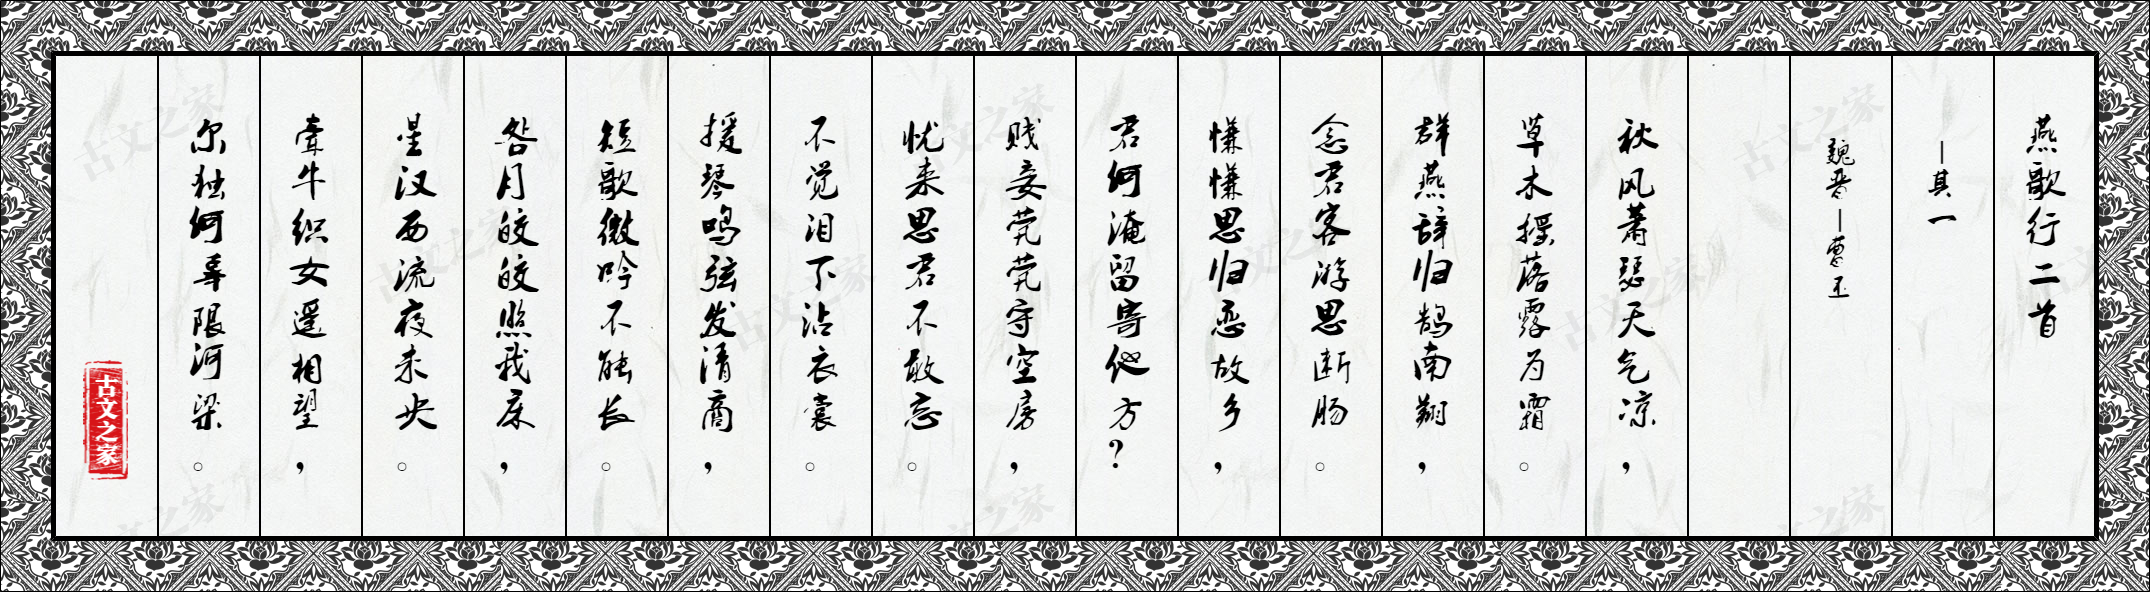 燕歌行二首
—其一
魏晋—曹丕
秋风萧瑟天气凉，
草木摇落露为霜。
群燕辞归鹄南翔，
念君客游思断肠。
慊慊思归恋故乡，
君何淹留寄他方?
贱妾茕茕守空房，
忧来思君不敢忘。
不觉泪下沾衣裳。
援琴鸣弦发清商，
短歌微吟不能长。
明月皎皎照我床，
星汉西流夜未央。
牵牛织女遥相望，
尔独何辜限河梁。
古文之家